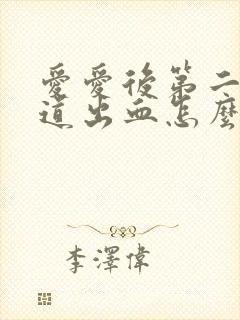 愛愛後第二
道出血怎麼
李澤偉